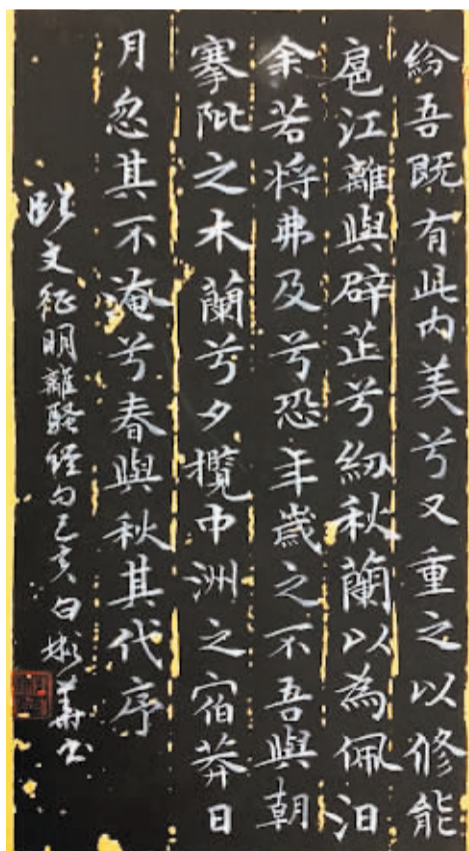 紛吾既有此内美兮又重之以修能
扈江離與辟芷兮紉秋蘭以為佩汩
余若将弗及兮恐年歲之不吾與朝
搴阰之木蘭兮夕攬中洲之宿莽日
月忽其不淹兮春與秋其代序
臨文征明離騷經句己亥白彬華书